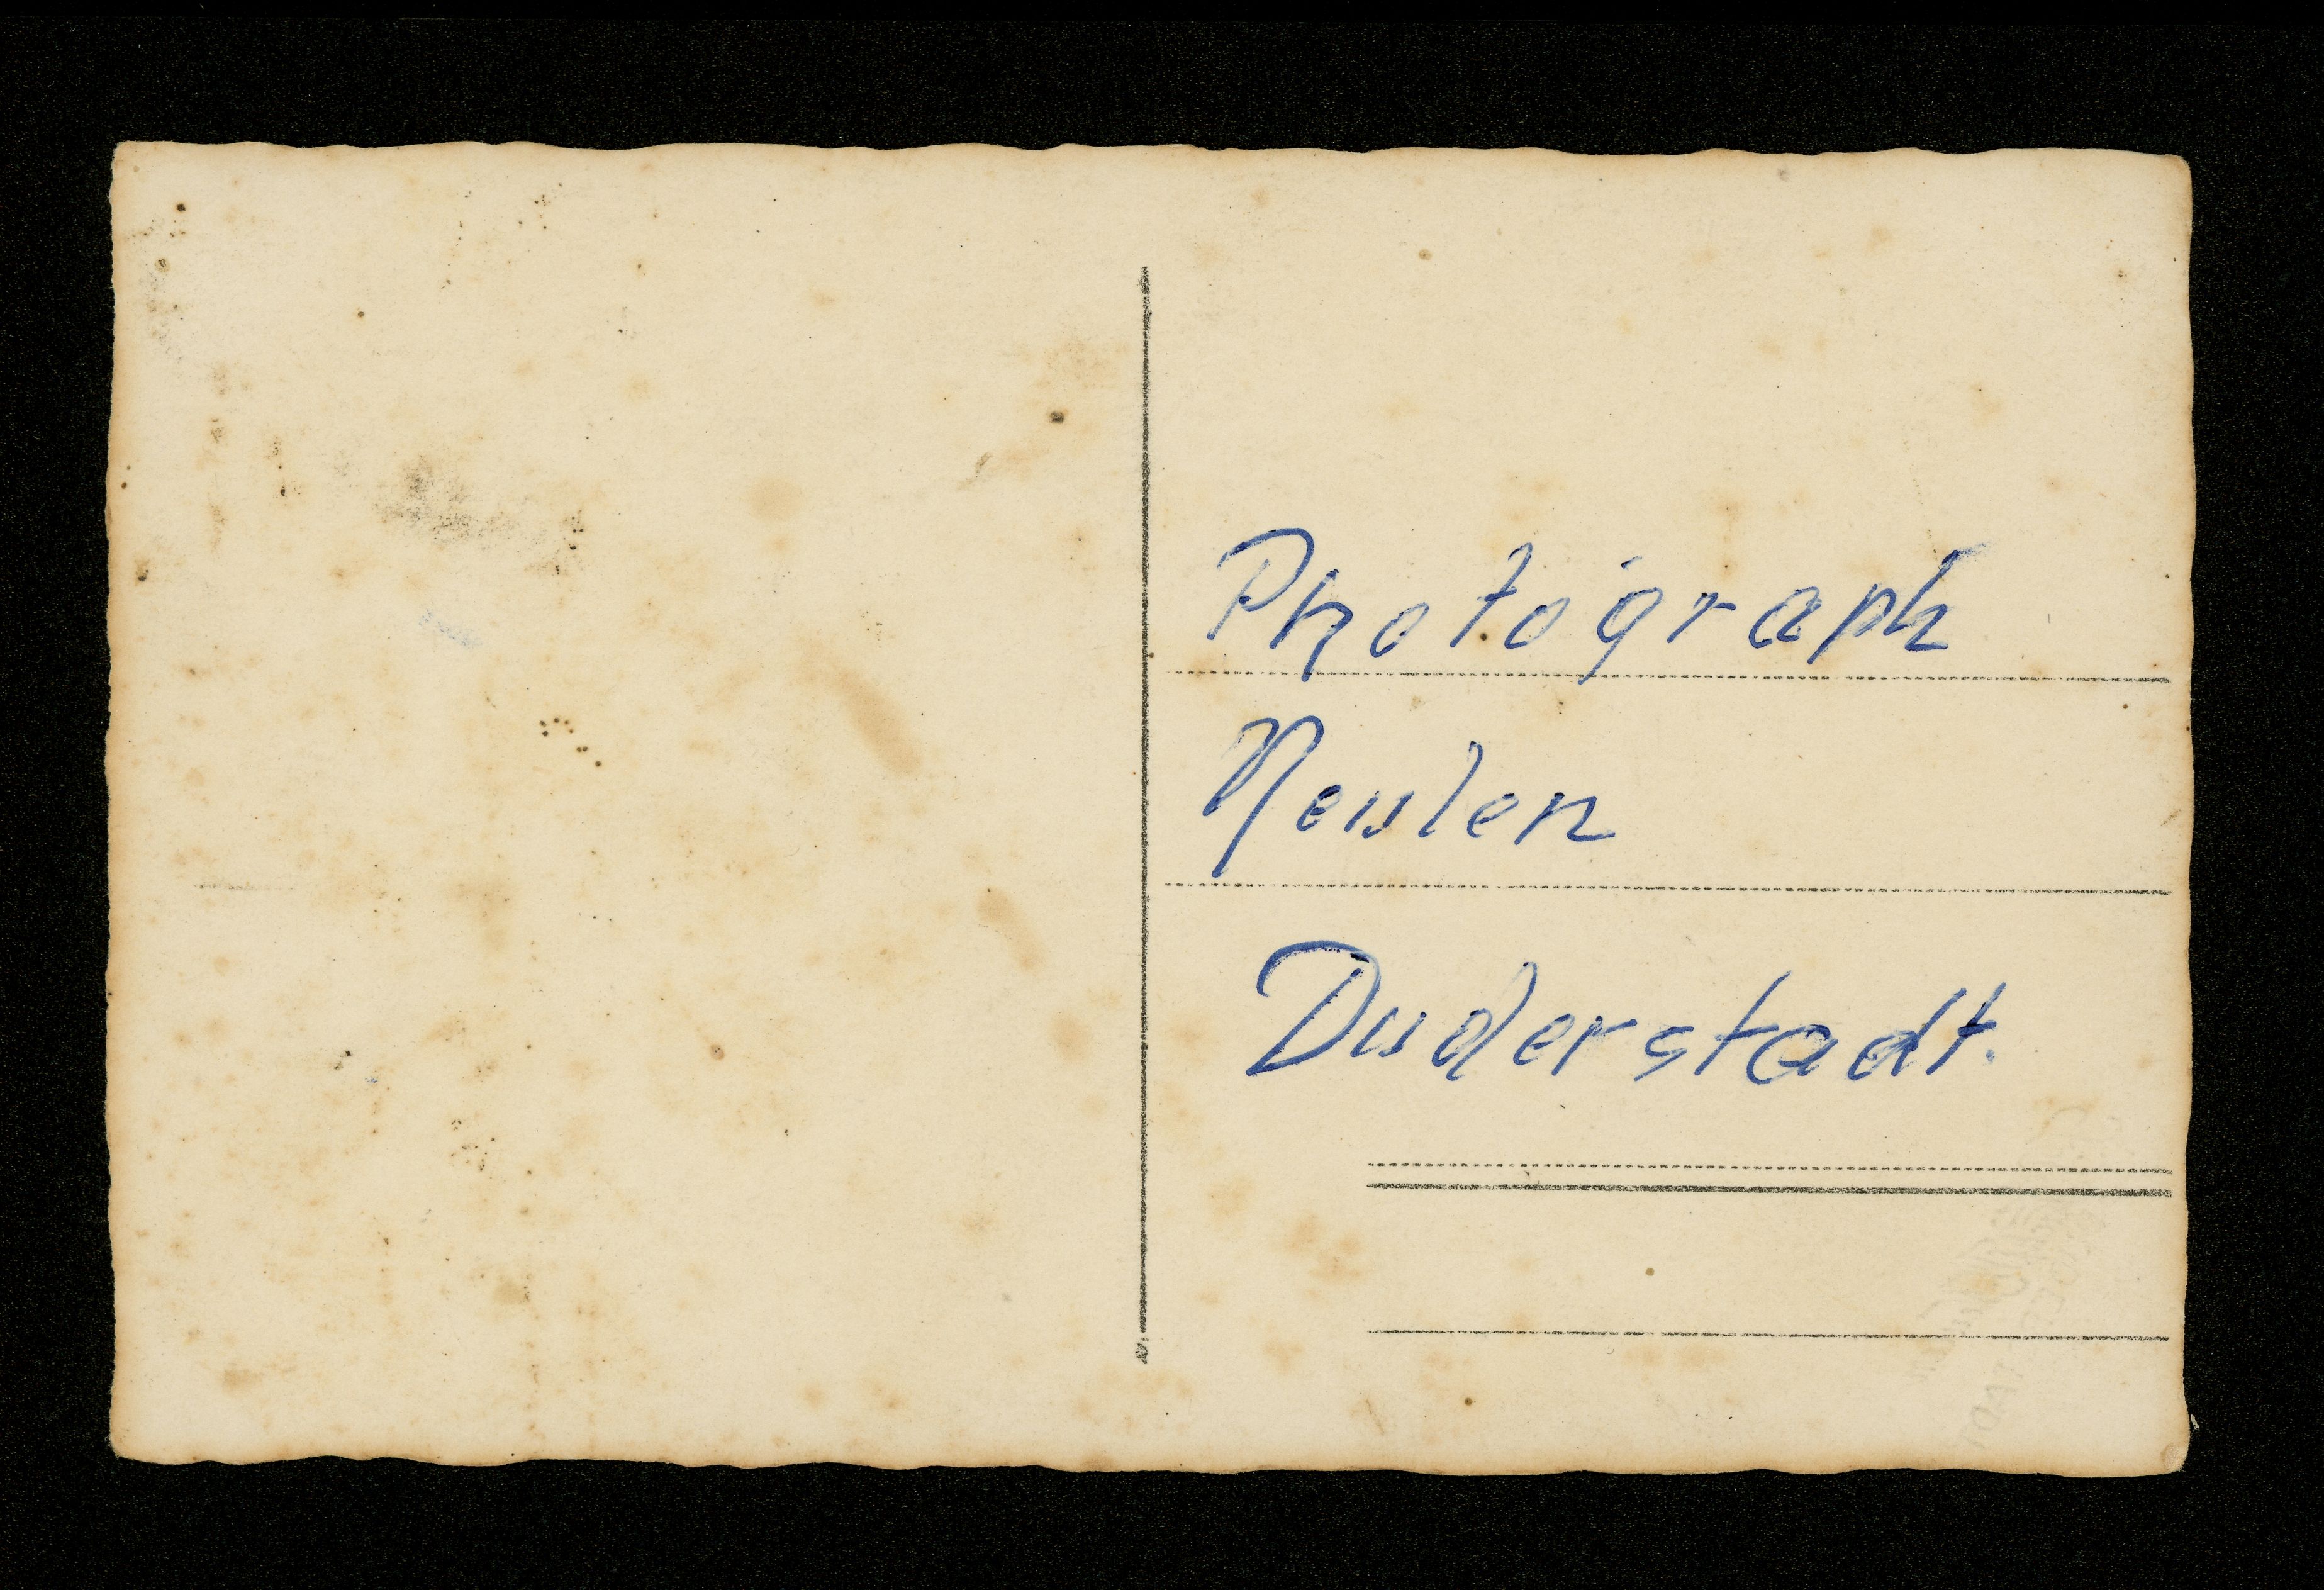 Photograph
Neulen
Duderstadt.